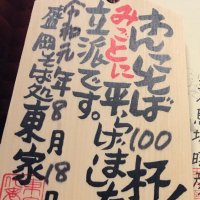 わんこそば100杯!
みごとに平らげました
立派です。
令和元年8月18日
盛岡そば処東家